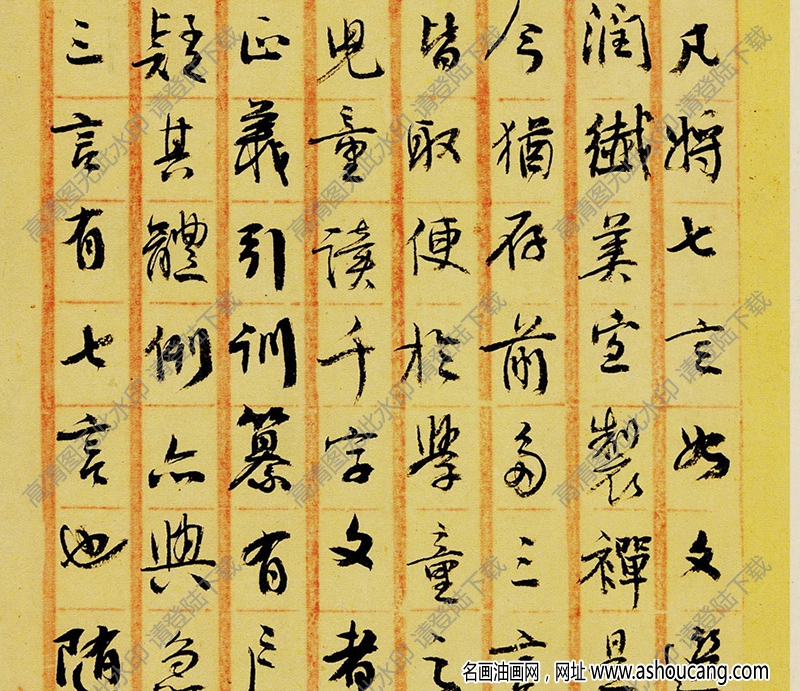 凡将七言如文選
潤纖美宜製禅
今猶存前多三言
皆取便於學童之
児童讀千字文者
正義引訓纂有
疑其體例亦與急
三言有七言也随
高清图无此水印 请登陆下载
名画油画网，网址 www.ashoucang.com